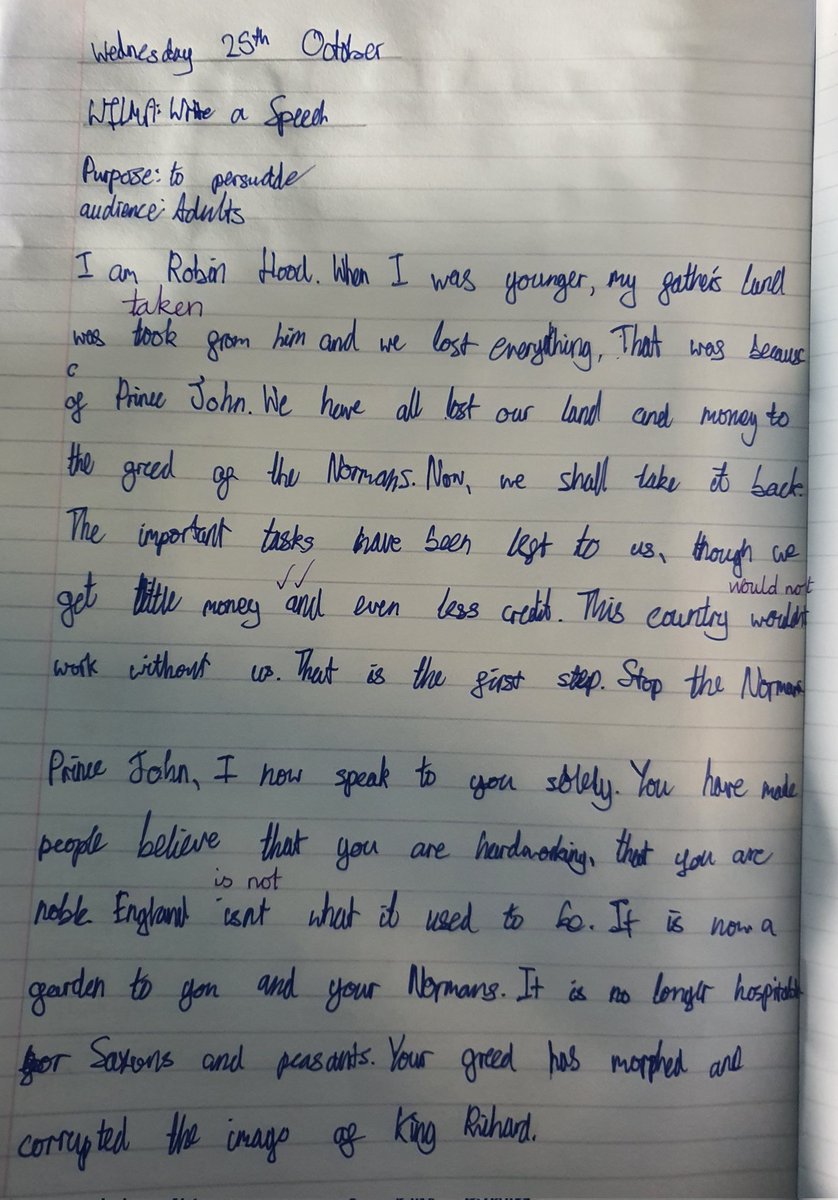 Wednesday 25th October
WILMA: Write a Speech
Purpose: to persuade
audience: Adults
I am Robin Hood. When I was younger, my father's land
taken
was took from him and we lost everything, That was because
c
of Prince John. We have all lost our land and money to
the greed of the Normans. Now, we shall take it back.
The important tasks have been left to us, though we
would not
get little money and even less credit. This country wouldn't
work without us. That is the first step. Stop the Normans
Prince John, I now speak to you solely. You have made
people believe that you are hardworking, that you are
is not
noble. England isnt what it used to be. It is now a
garden to you and your Normans. It is no longer hospitable
for Saxons and peasants. Your greed has morphed and
corrupted the image of King Richard.